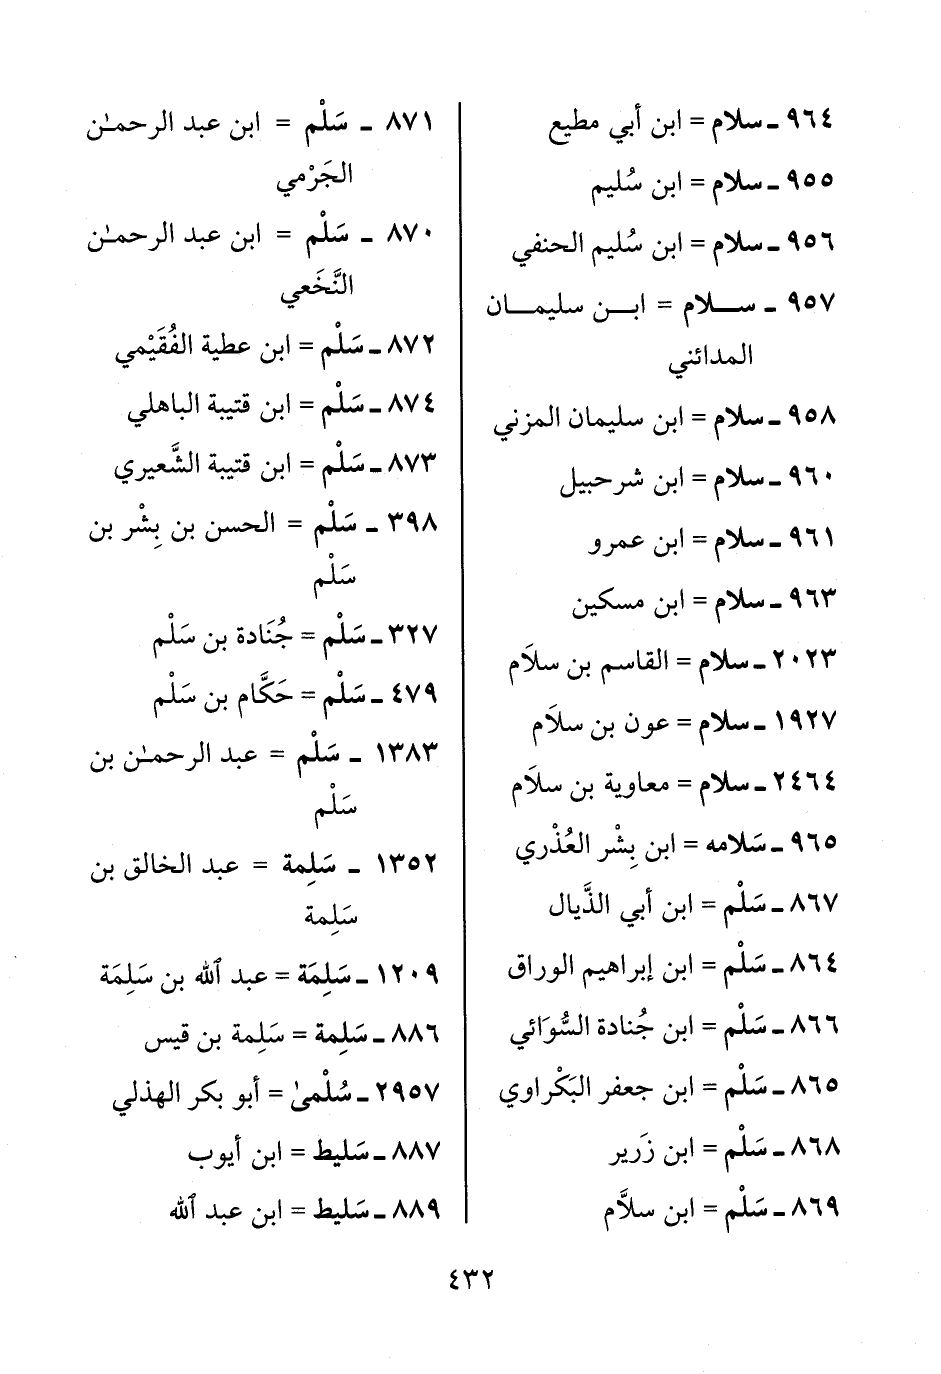 ٩٦٤ ـ سلام = ابن أبي مطيع
٩٥٥ ـ سلام = ابن سُليم
٩٥٦ ـ سلام = ابن سُليم الحنفي
٩٥٧ ـ ســـلام = ابـــن سليمـــان
المدائني
٩٥٨ ـ سلام = ابن سليمان المزني
٩٦٠ ـ سلام = ابن شرحبيل
٩٦١ ـ سلام = ابن عمرو
٩٦٣ ـ سلام = ابن مسكين
٢٠٢٣ ـ سلام = القاسم بن سلاَم
١٩٢٧ ـ سلام = عون بن سلاَم
٢٤٦٤ ـ سلام = معاوية بن سلاَم
٩٦٥ ـ سَلامه = ابن بِشْر العُذْري
٨٦٧ ـ سَلْم = ابن أبي الذَّيال
٨٦٤ ـ سَلْم = ابن إبراهيم الوراق
٨٦٦ ـ سَلْم = ابن جُنادة السُّوَائي
٨٦٥ ـ سَلْم = ابن جعفر البَكْراوي
٨٦٨ ـ سَلْم = ابن زَرير
٨٦٩ ـ سَلْم = ابن سلاَّم
٨٧١ ـ سَلْم = ابن عبد الرحمـٰن
الجَرْمي
٨٧٠ ـ سَلْم = ابن عبد الرحمـٰن
النَّخَعي
٨٧٢ ـ سَلْم = ابن عطية الفُقَيْمي
٨٧٤ ـ سَلْم = ابن قتيبة الباهلي
٨٧٣ ـ سَلْم = ابن قتيبة الشَّعيري
٣٩٨ ـ سَلْم = الحسن بن بِشْر بن
سَلْم
٣٢٧ ـ سَلْم = جُنَادة بن سَلْم
٤٧٩ ـ سَلْم = حَكَّام بن سَلْم
١٣٨٣ ـ سَلْم = عبد الرحمـٰن بن
سَلْم
١٣٥٢ ـ سَلِمة = عبد الخالق بن
سَلِمة
١٢٠٩ ـ سَلِمَة = عبد ٱلله بن سَلِمَة
٨٨٦ ـ سَلِمة = سَلِمة بن قيس
٢٩٥٧ ـ سُلْمىٰ = أبو بكر الهذلي
٨٨٧ ـ سَليط = ابن أيوب
٨٨٩ ـ سَليط = ابن عبد ٱلله
٤٣٢